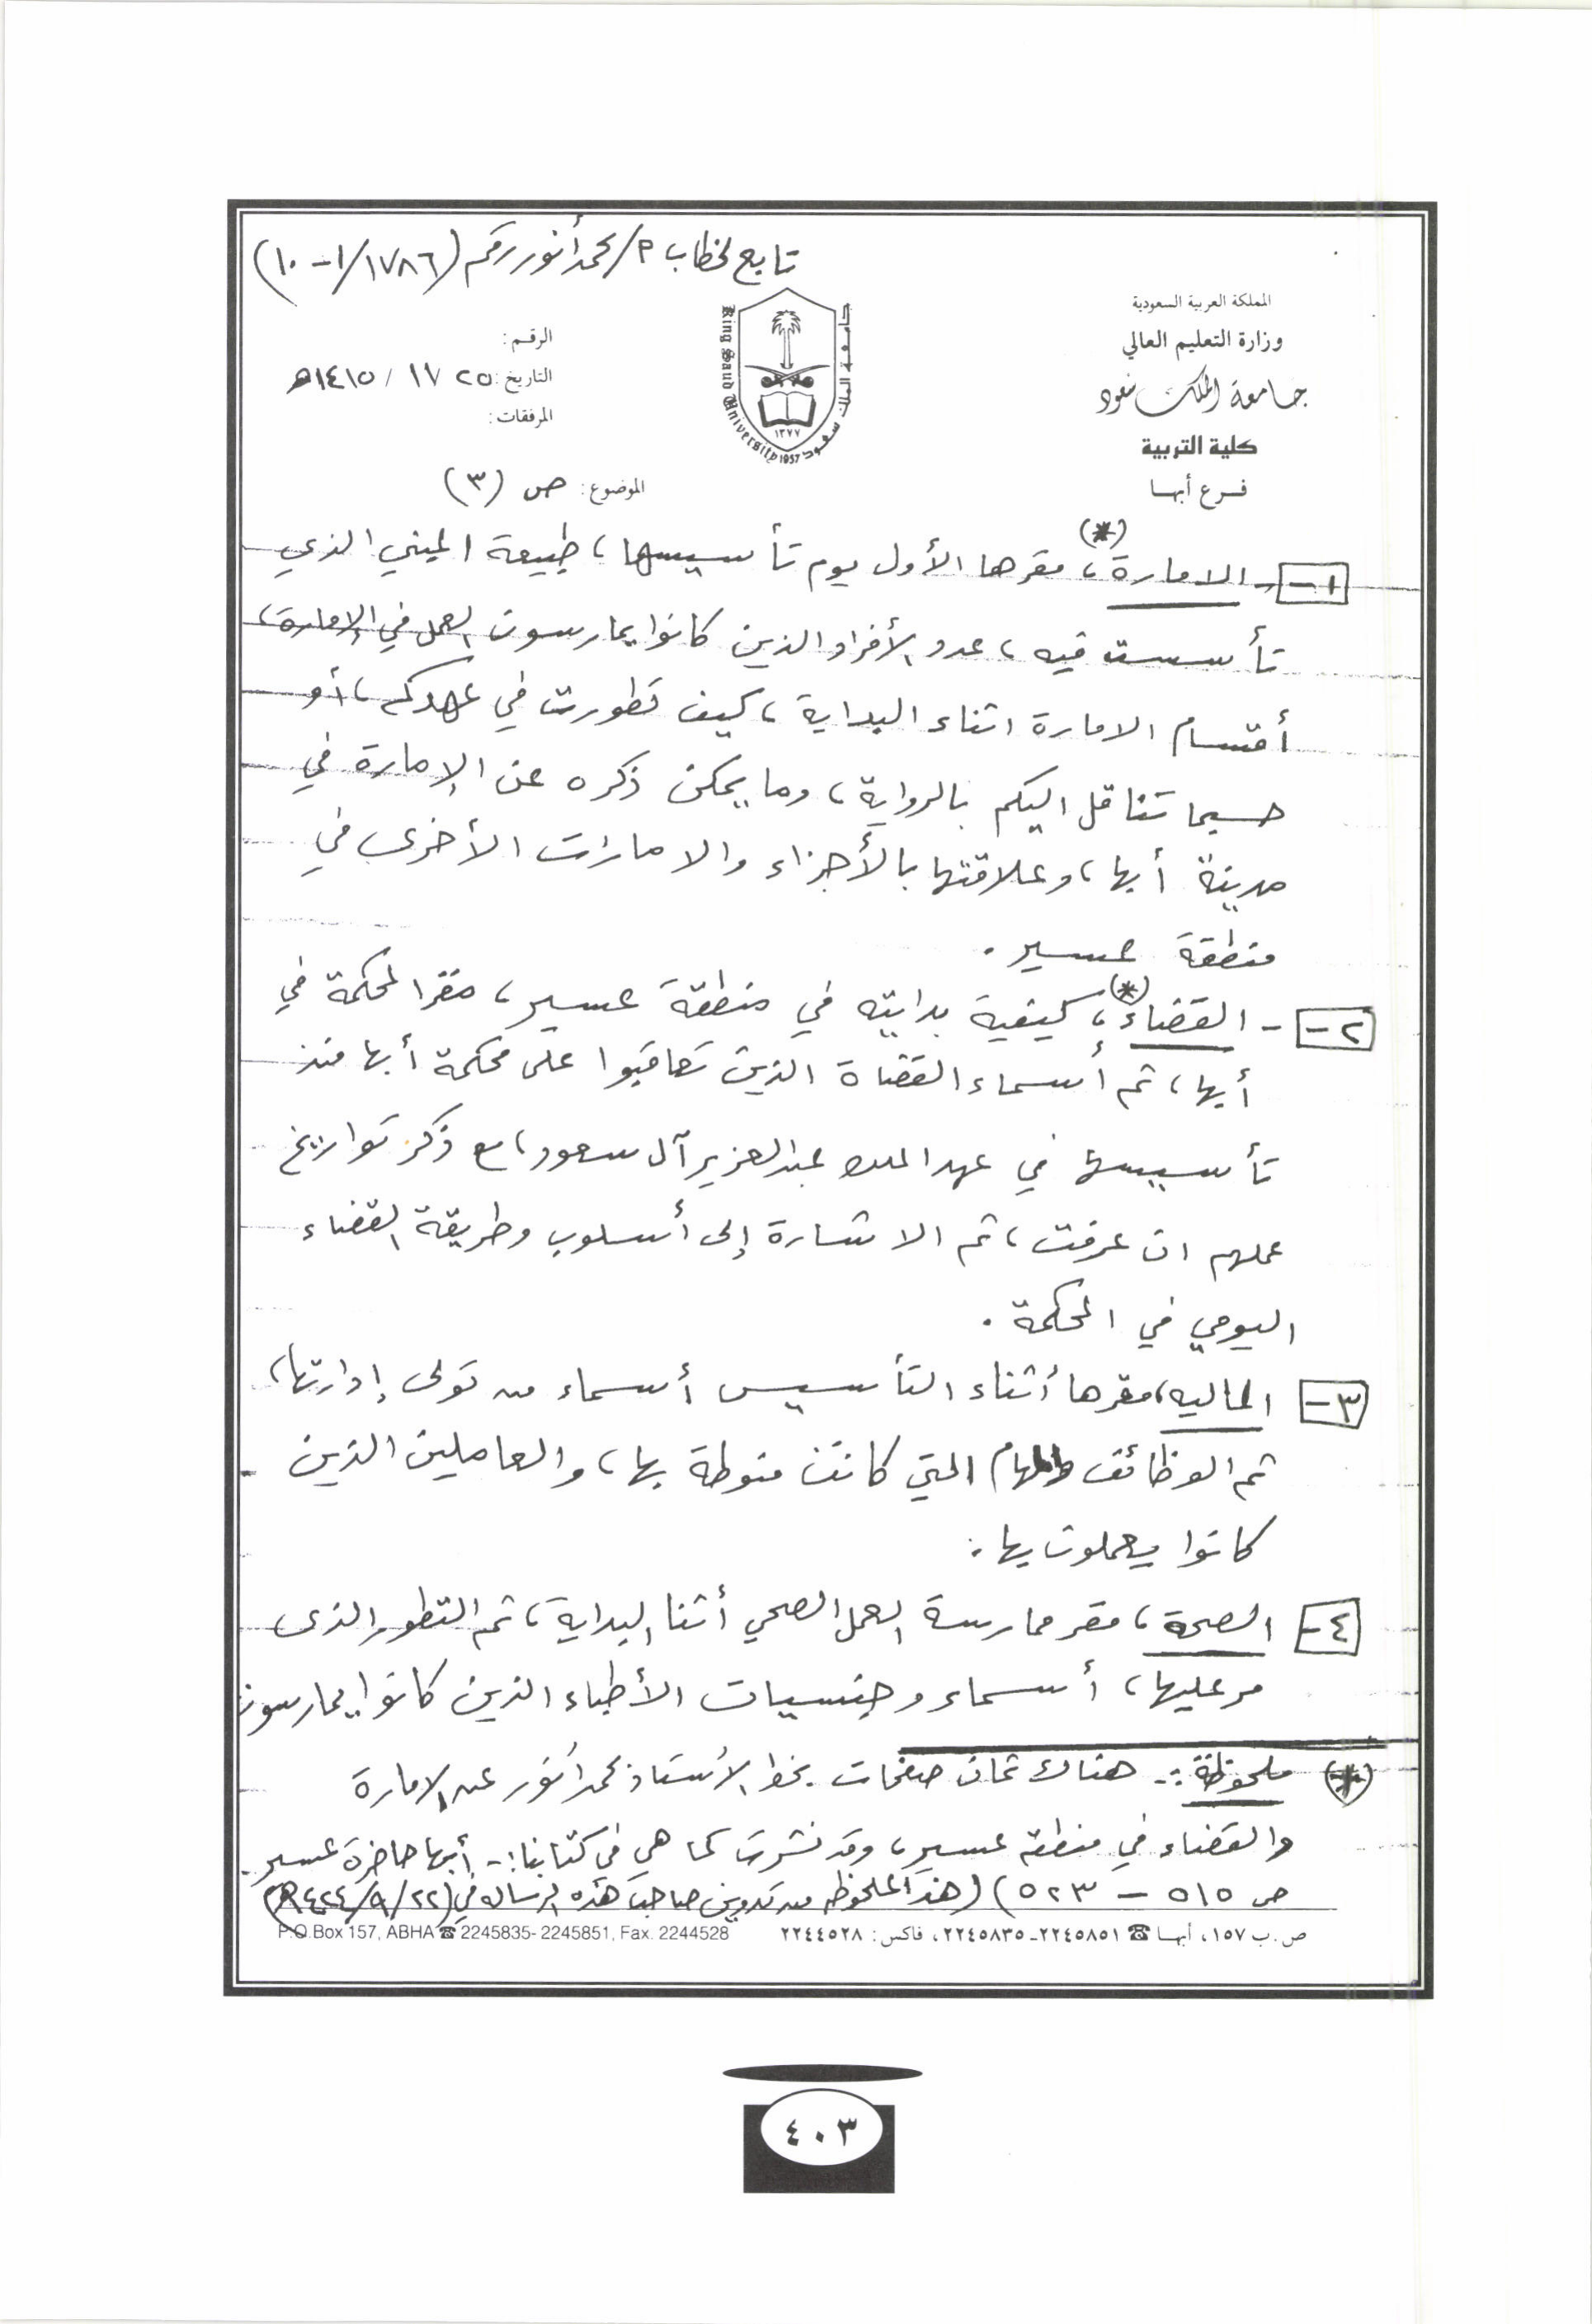 تابع لخطاب م/محمد أنور رقم (١٧٨٦/ ١-١٠)
المملكة العربية السعودية
وزارة التعليم العالي
جامعة الملك سعود
كلية التربية
فرع أبها
جامعة الملك سعود
King Saud University 1957
١٣٧٧
الرقم:
التاريخ: ٢٥ ١٧ / ١٤١٥هـ
المرفقات:
الموضوع: ص (٣)
١- - الامارة،(*) مقرها الأول يوم تأسيسها، طبيعة المبنى الذي
تأسست فيه، عدد الأفراد الذين كانوا يمارسون العمل في الإمارة،
أقسام الامارة اثناء البداية، كيف تطورت في عهدكم، أو
حسبما تناقل اليكم بالرواية، وما يمكن ذكره عن الإمارة في
مدينة أبها، وعلاقتها بالأجزاء والامارات الأخرى في
منطقة عسير.
٢- - القضاء،(*) كيفية بدايته في منطقة عسير، مقر المحكمة في
أبها، ثم أسماء القضاة الذين تعاقبوا على محكمة أبها منذ
تأسيسها في عهد الملك عبدالعزيز آل سعود، مع ذكر تواريخ
عملهم ان عرفت، ثم الاشارة إلى أسلوب وطريقة القضاء
اليومي في المحكمة.
٣- الماليه، مقرها أثناء التأسيس أسماء من تولى إدارتها،
ثم الوظائف والمهام التي كانت منوطة بها، والعاملين الذين
كانوا يعملون بها.
٤- الصحة، مقر ممارسة العمل الصحي أثنا البداية، ثم التطور الذى
مر عليها، أسماء وجنسيات الأطباء الذين كانوا يمارسون
(*) ملحوظة:- هناك ثمان صفحات بخط الأستاذ محمد أنور عن الامارة
والقضاء في منطقة عسير، وقد نشرت كما هي في كتابنا:- أبها حاضرة عسير
ص ٥١٥ - ٥٢٣) (هذه الملحوظه من تدوين صاحب هذه الرساله في (٢٢/ ٩/ ١٤٢٤هـ)
ص.ب ١٥٧، أبها ☎ ٢٢٤٥٨٥١-٢٢٤٥٨٣٥، فاكس: ٢٢٤٤٥٢٨
P.O.Box 157, ABHA ☎ 2245835- 2245851, Fax. 2244528
٤٠٣